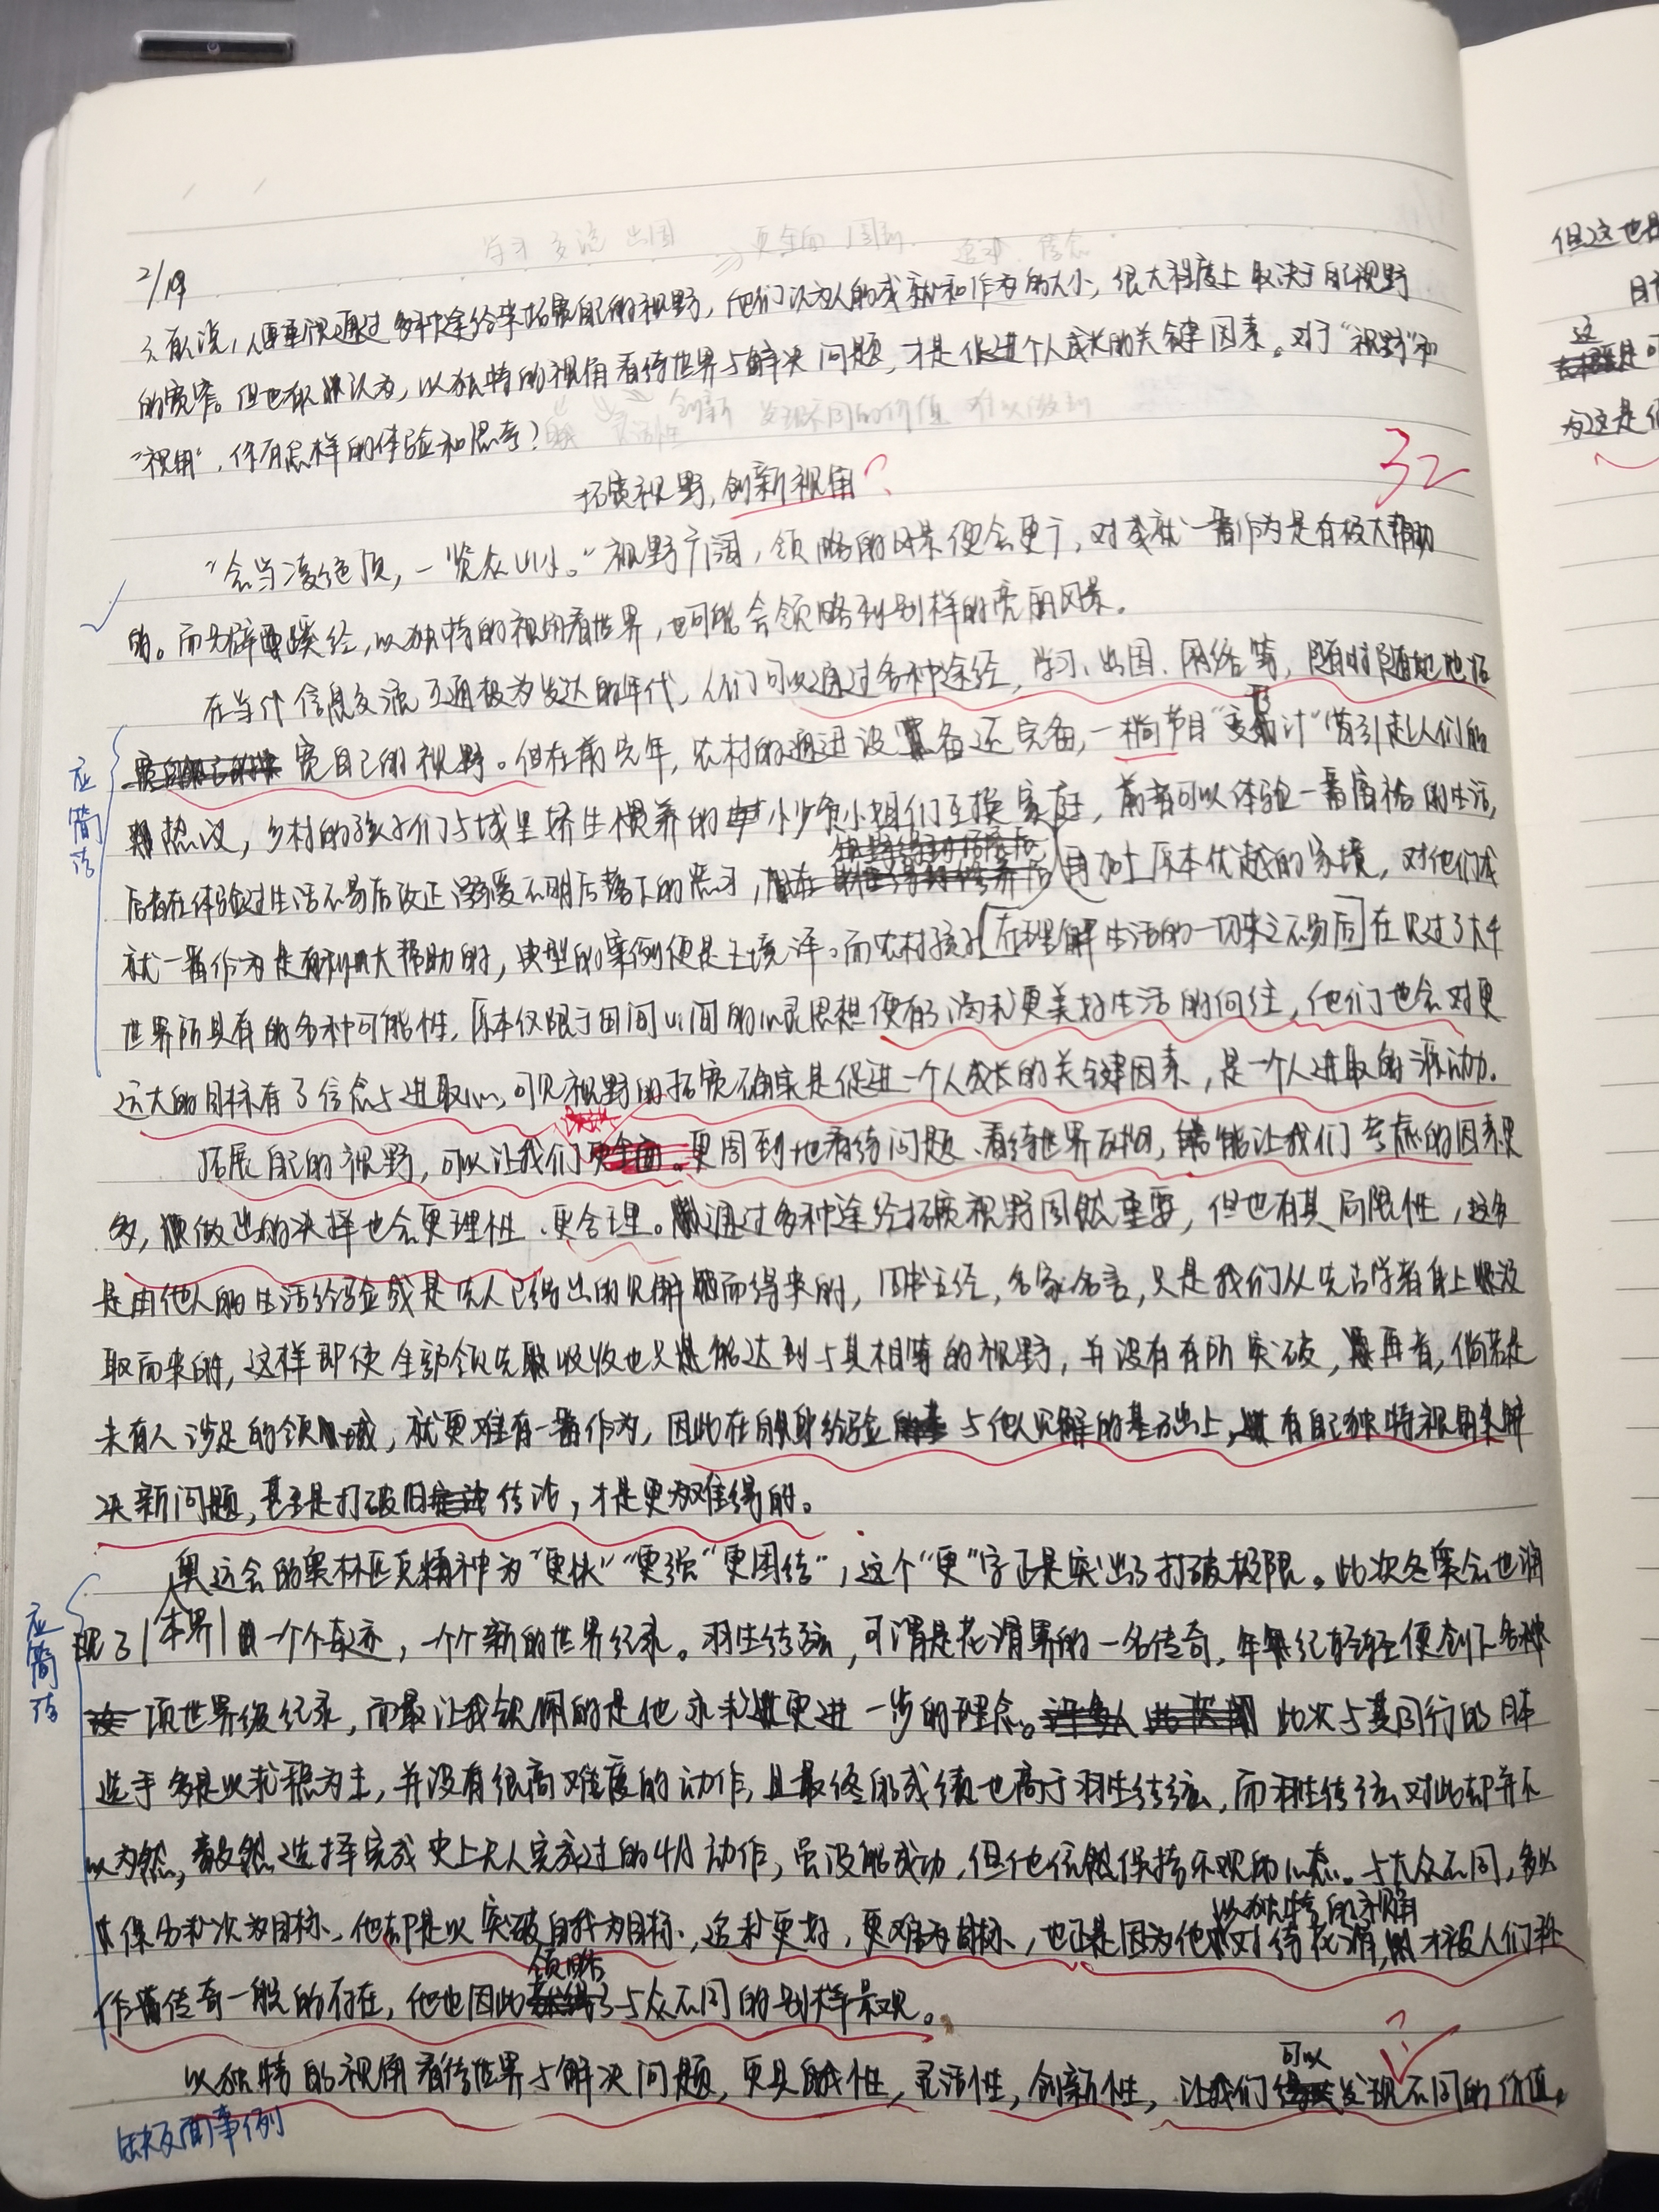 学习 交流 出国 ⇒ 更全面 周到 进取 信念
2/19
3.有人说,人要重视通过多种途径来拓展自己的视野,他们认为人的成就和作为的大小,很大程度上取决于自己视野
的宽窄。但也有人认为,以独特的视角看待世界与解决问题,才是促进个人成长的关键因素。对于“视野”和
创新 发现不同的价值 难以做到
“视角”,你有怎样的体验和思考?
拓展视野,创新视角?
32
“会当凌绝顶,一览众山小。”视野广阔,领略的风景便会更广,对成就一番作为是有极大帮助
的。而另辟蹊径,以独特的视角看世界,也可能会领略到别样的亮丽风景。
在当代信息交流互通极为发达的年代,人们可以通过各种途经,学习、出国、网络等,随时随地地拓
宽自己的视野。但在前先年,农村的通迅设备还完备,一档节目“变形计”曾引起人们的
热议,乡村的孩子们与城里娇生惯养的小少爷小姐们互换家庭,前者可以体验一番富裕的生活,
后者在体验过生活不易后改正溺爱不明后落下的恶习,再加上原本优越的家境,对他们成
就一番作为是有极大帮助的,典型的案例便是王境泽。而农村孩子[在理解生活的一切来之不易后]在见过了大千
世界所具有的各种可能性,原本仅限于田间山间的心灵思想便有了渴求更美好生活的向往,他们也会对更
远大的目标有了信念与进取心,可见视野的拓宽确实是促进一个人成长的关键因素,是一个人进取的源动力。
拓展自己的视野,可以让我们更周到地看待问题、看待世界万物,能让我们考虑的因素更
多,做出的决择也会更理性、更合理。通过多种途经拓展视野固然重要,但也有其局限性,这多
是由他人的生活经验或是先人已得出的见解而得来的,四书五经,名家名言,只是我们从先古学者身上汲
取而来的,这样即使全部领先吸收也只能达到与其相等的视野,并没有有所突破,再者,倘若是
未有人涉足的领域,就更难有一番作为,因此在自身经验与他人见解的基础上,有自己独特视角来解
决新问题,甚至是打破旧传法,才是更为难得的。
奥运会的奥林匹克精神为“更快”“更强”“更团结”,这个“更”字正是突出了打破极限。此次冬奥会也涌
现了本界一个个奇迹,一个个新的世界纪录。羽生结弦,可谓是花滑界的一名传奇,年纪轻轻便创下各种
项世界级纪录,而最让我钦佩的是他永求更进一步的理念。此次与其同行的日本
选手多是以求稳为主,并没有很高难度的动作,且最终的成绩也高于羽生结弦,而羽生结弦对此却并不
以为然,毅然选择完成史上无人完成过的4A动作,虽没能成功,但他依然保持乐观的心态。与大众不同,多以
保分求次为目标、他却是以突破自我为目标,追求更好,更难为目标,也正是因为他以独特的视角对待花滑,才被人们称
作传奇一般的存在,他也因此领略了与众不同的别样景观。
以独特的视角看待世界与解决问题,更具自我性,灵活性,创新性,让我们可以发现不同的价值。
应简洁
应简洁
缺反面事例
但这也是
目
这
为这是